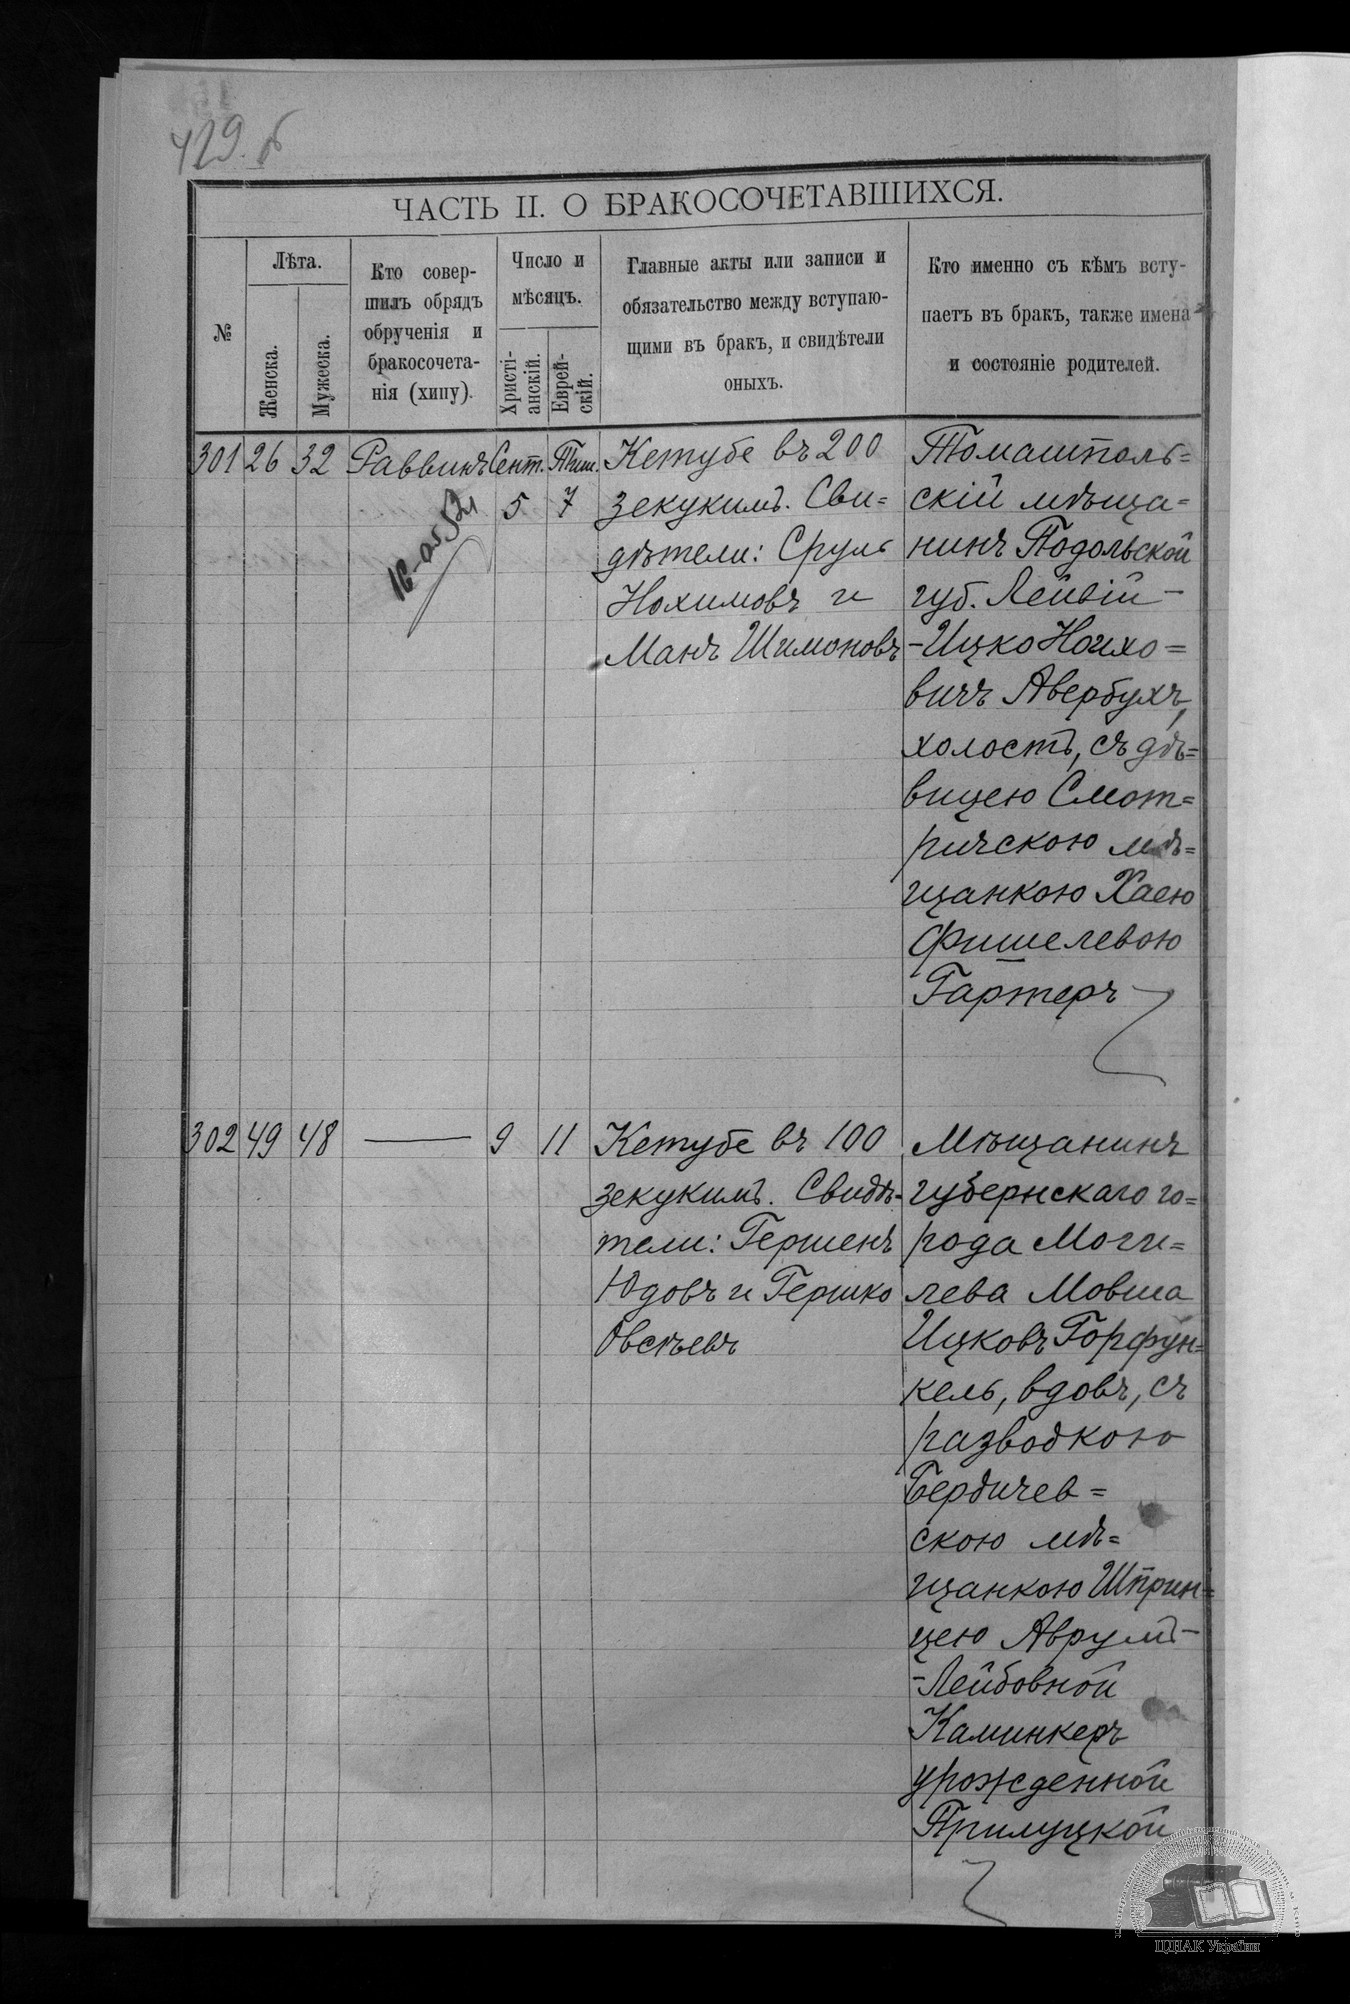 429 б
ЧАСТЬ II. О БРАКОСОЧЕТАВШИХСЯ.
№
Лѣта.
Женска.
Мужеска.
Кто совер-
шилъ обрядъ
обрученія и
бракосочета-
нія (хипу).
Число и
мѣсяцъ.
Христі-
анскій.
Еврей-
скій.
Главные акты или записи и
обязательство между вступаю-
щими въ бракъ, и свидѣтели
оныхъ.
Кто именно съ кѣмъ всту-
паетъ въ бракъ, также имена
и состояніе родителей.
301 26 32 Раввинъ Сент. Тиш.
5 7
Кетубе въ 200
зекукимъ. Сви=
дѣтели: Сруль
Нохимовъ и
Манъ Шимоновъ
Томашполь=
скій мѣща=
нинъ Подольской
губ. Лейвій-
-Ицко Ноихо=
вичъ Авербухъ,
холостъ, съ дѣ=
вицею Смот=
ричскою мѣ=
щанкою Хаею
Фишелевою
Гартеръ
302 49 48 — 9 11
Кетубе въ 100
зекукимъ. Свидѣ-
тели: Гершенъ
Юдовъ и Гершко
Овсѣевъ
Мѣщанинъ
губернскаго го=
рода Моги=
лева Мовша
Ицковъ Горфун=
кель, вдовъ, съ
разводкою
Бердичев=
скою мѣ=
щанкою Шприн=
цею Аврумъ-
-Лейбовной
Каминкеръ
урожденной
Прилуцкой
ЦДІАК України